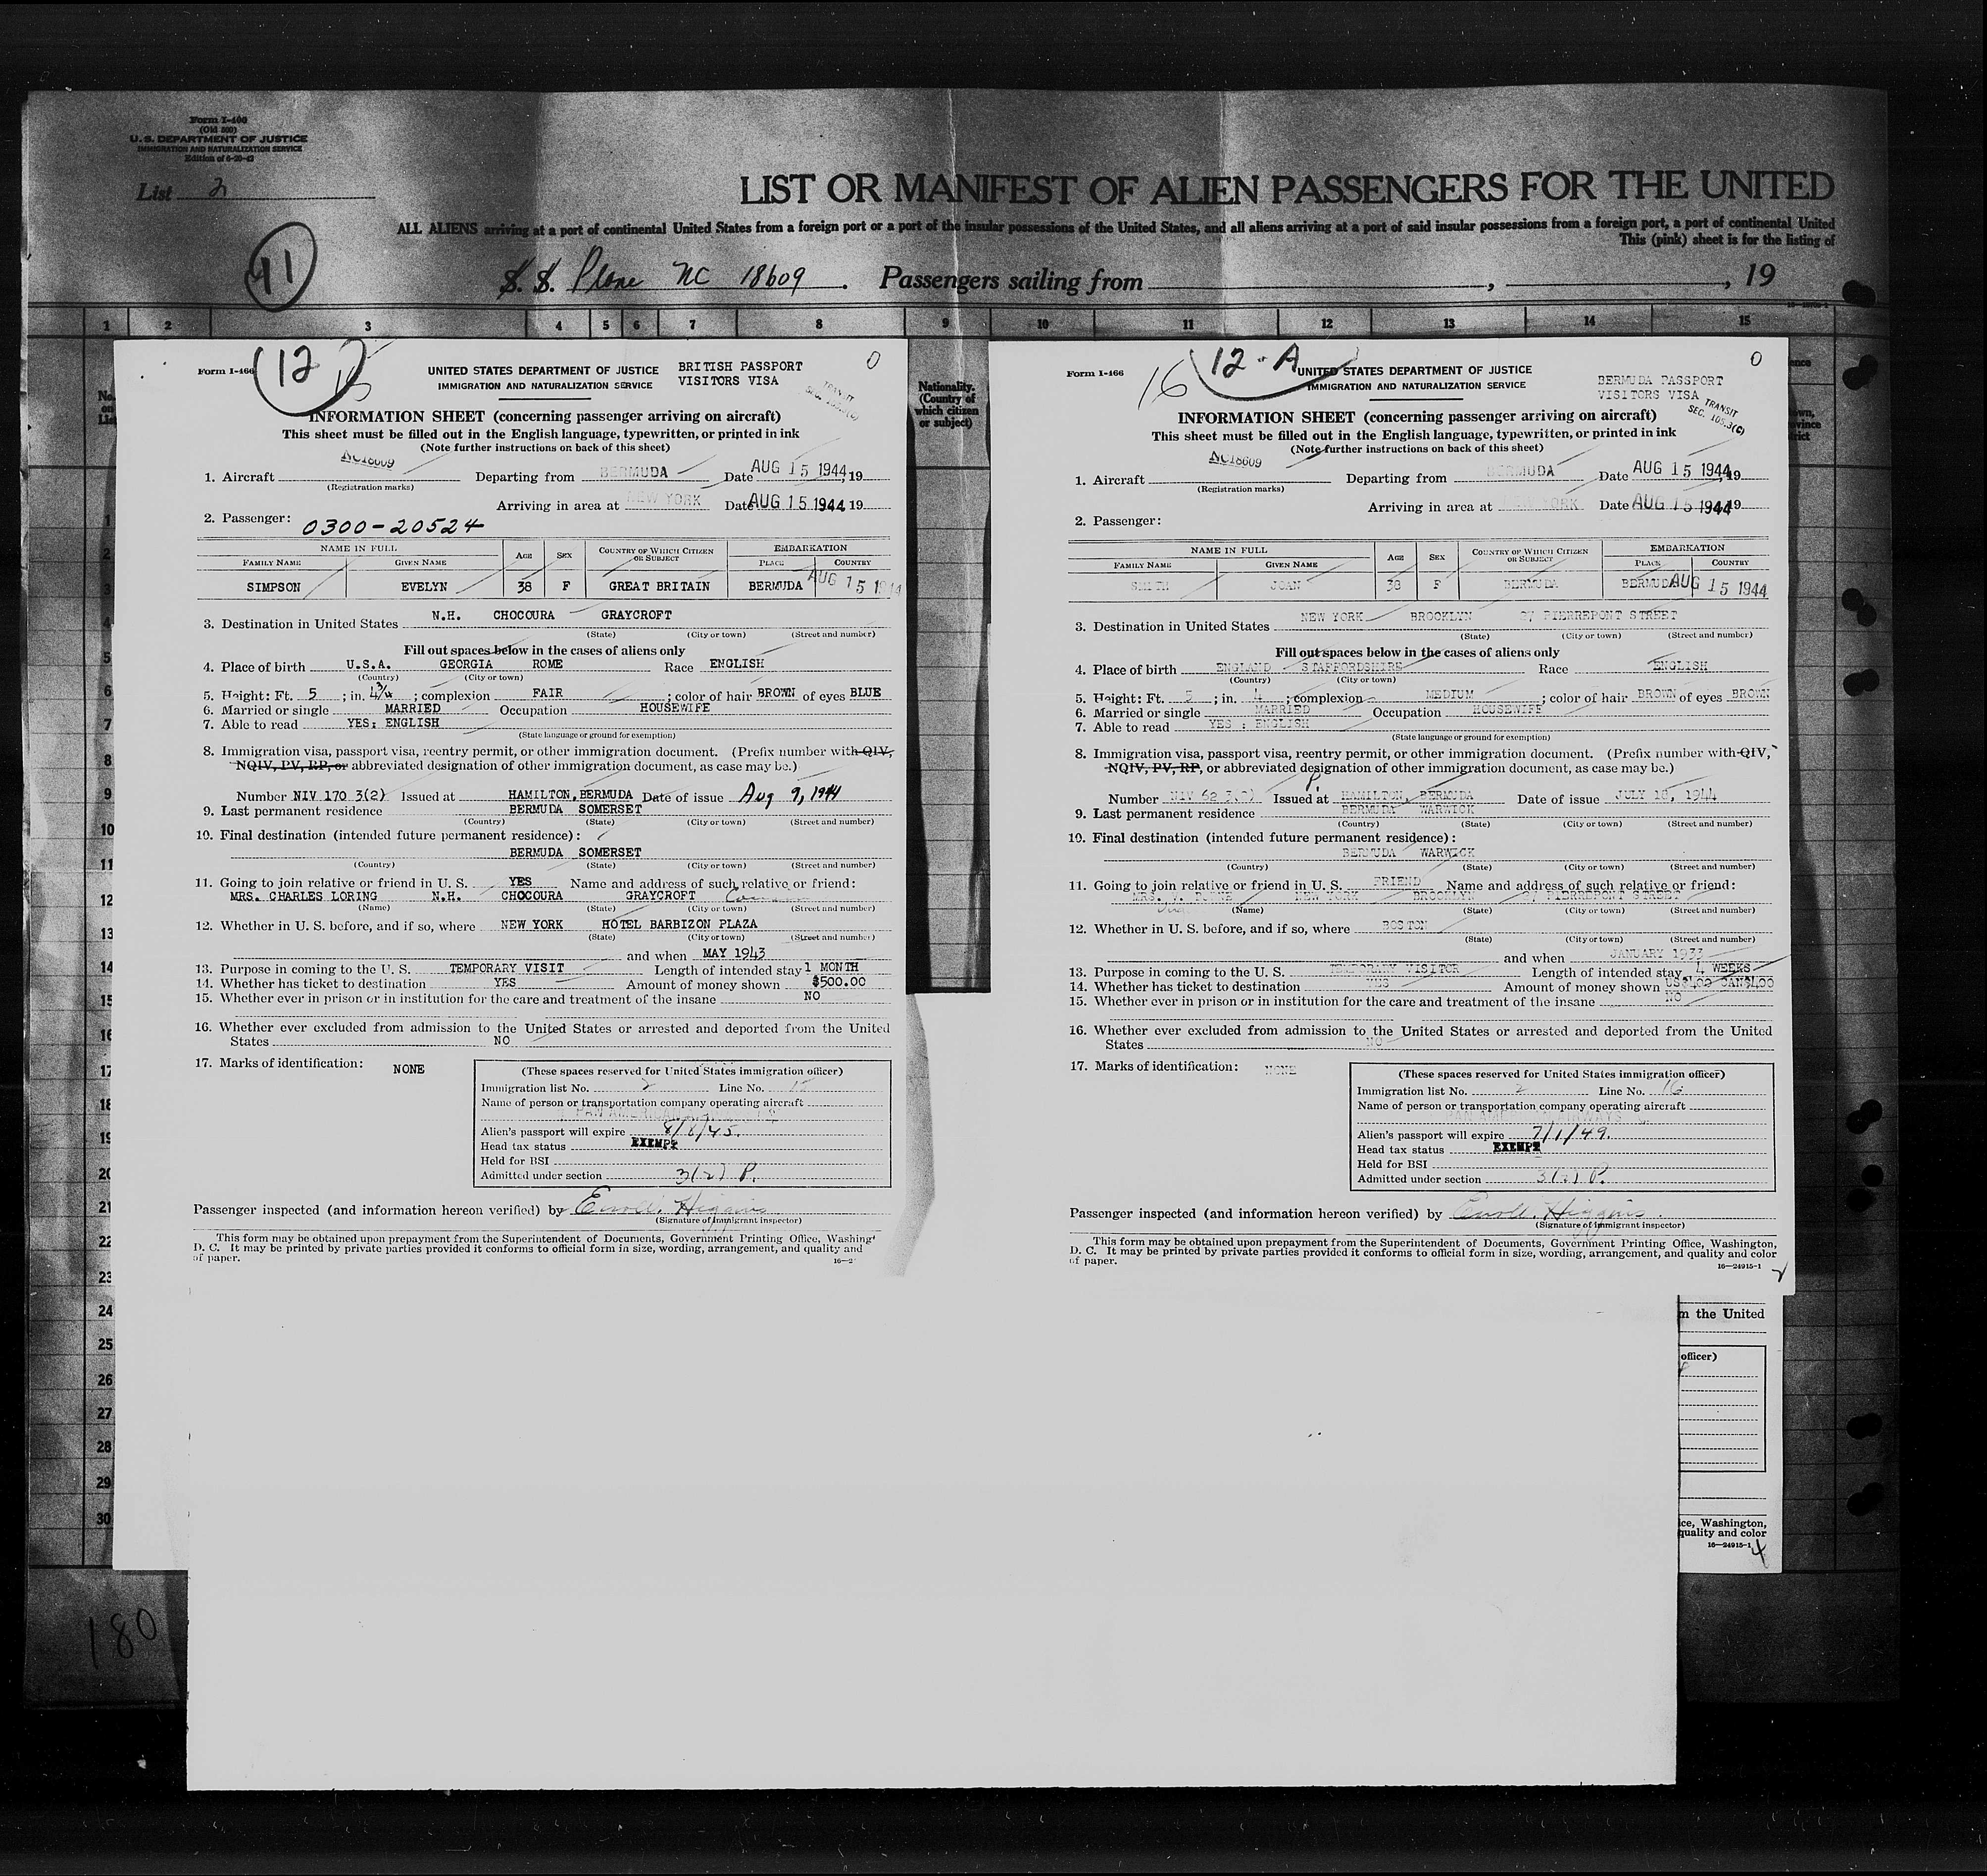 Form I-466
(Old 500)
U. S. DEPARTMENT OF JUSTICE
IMMIGRATION AND NATURALIZATION SERVICE
Edition of 6-20-42
List 2
LIST OR MANIFEST OF ALIEN PASSENGERS FOR THE UNITED
ALL ALIENS arriving at a port of continental United States from a foreign port or a port of the insular possessions of the United States, and all aliens arriving at a port of said insular possessions from a foreign port, a port of continental United
This (pink) sheet is for the listing of
41
S. S. Plane NC 18609 . Passengers sailing from , , 19
1 2 3 4 5 6 7 8 9 10 11 12 13 14 15
Nationality.
(Country of
which citizen
or subject)
Form I-466
12
15
UNITED STATES DEPARTMENT OF JUSTICE
IMMIGRATION AND NATURALIZATION SERVICE
BRITISH PASSPORT
VISITORS VISA
0
TRANSIT
INFORMATION SHEET (concerning passenger arriving on aircraft)
This sheet must be filled out in the English language, typewritten, or printed in ink
(Note further instructions on back of this sheet)
1. Aircraft NC18609 Departing from BERMUDA Date AUG 15 1944, 19
(Registration marks)
Arriving in area at NEW YORK Date AUG 15 1944 19
2. Passenger: 0300-20524
NAME IN FULL AGE SEX COUNTRY OF WHICH CITIZEN OR SUBJECT EMBARKATION
FAMILY NAME GIVEN NAME PLACE COUNTRY
SIMPSON EVELYN 38 F GREAT BRITAIN BERMUDA AUG 15 1944
3. Destination in United States N.H. CHOCOURA GRAYCROFT
(State) (City or town) (Street and number)
Fill out spaces below in the cases of aliens only
4. Place of birth U.S.A. GEORGIA ROME Race ENGLISH
(Country) (City or town)
5. Height: Ft. 5 ; in. 4¾ ; complexion FAIR ; color of hair BROWN of eyes BLUE
6. Married or single MARRIED Occupation HOUSEWIFE
7. Able to read YES: ENGLISH
(State language or ground for exemption)
8. Immigration visa, passport visa, reentry permit, or other immigration document. (Prefix number with QIV,
NQIV, PV, RP, or abbreviated designation of other immigration document, as case may be.)
Number NIV 170 3(2) Issued at HAMILTON, BERMUDA Date of issue Aug 9, 1944
9. Last permanent residence BERMUDA SOMERSET
(Country) (State) (City or town) (Street and number)
10. Final destination (intended future permanent residence):
BERMUDA SOMERSET
(Country) (State) (City or town) (Street and number)
11. Going to join relative or friend in U. S. YES Name and address of such relative or friend:
MRS. CHARLES LORING N.H. CHOCOURA GRAYCROFT
(Name) (State) (City or town) (Street and number)
12. Whether in U. S. before, and if so, where NEW YORK HOTEL BARBIZON PLAZA
(State) (City or town) (Street and number)
and when MAY 1943
13. Purpose in coming to the U. S. TEMPORARY VISIT Length of intended stay 1 MONTH
14. Whether has ticket to destination YES Amount of money shown $500.00
15. Whether ever in prison or in institution for the care and treatment of the insane NO
16. Whether ever excluded from admission to the United States or arrested and deported from the United
States NO
17. Marks of identification: NONE
(These spaces reserved for United States immigration officer)
Immigration list No. 2 Line No. 15
Name of person or transportation company operating aircraft
PAN AMERICAN
Alien's passport will expire 8/8/45.
Head tax status EXEMPT
Held for BSI
Admitted under section 3(2) P.
Passenger inspected (and information hereon verified) by Higgins
(Signature of immigrant inspector)
This form may be obtained upon prepayment from the Superintendent of Documents, Government Printing Office, Washing
D. C. It may be printed by private parties provided it conforms to official form in size, wording, arrangement, and quality and
of paper.
16—2
Form I-466
16
12-A
UNITED STATES DEPARTMENT OF JUSTICE
IMMIGRATION AND NATURALIZATION SERVICE
BERMUDA PASSPORT
VISITORS VISA
0
TRANSIT
SEC. 105.3(C)
INFORMATION SHEET (concerning passenger arriving on aircraft)
This sheet must be filled out in the English language, typewritten, or printed in ink
(Note further instructions on back of this sheet)
1. Aircraft NC18609 Departing from BERMUDA Date AUG 15 1944, 19
(Registration marks)
Arriving in area at NEW YORK Date AUG 15 1944 19
2. Passenger:
NAME IN FULL AGE SEX COUNTRY OF WHICH CITIZEN OR SUBJECT EMBARKATION
FAMILY NAME GIVEN NAME PLACE COUNTRY
SMITH JOAN 38 F BERMUDA BERMUDA AUG 15 1944
3. Destination in United States NEW YORK BROOKLYN 27 PIERREPONT STREET
(State) (City or town) (Street and number)
Fill out spaces below in the cases of aliens only
4. Place of birth ENGLAND STAFFORDSHIRE Race ENGLISH
(Country) (City or town)
5. Height: Ft. 5 ; in. 4 ; complexion MEDIUM ; color of hair BROWN of eyes BROWN
6. Married or single MARRIED Occupation HOUSEWIFE
7. Able to read YES : ENGLISH
(State language or ground for exemption)
8. Immigration visa, passport visa, reentry permit, or other immigration document. (Prefix number with QIV,
NQIV, PV, RP, or abbreviated designation of other immigration document, as case may be.)
Number NIV 62 3(2) Issued at HAMILTON, BERMUDA Date of issue JULY 18, 1944
9. Last permanent residence BERMUDA WARWICK
(Country) (State) (City or town) (Street and number)
10. Final destination (intended future permanent residence):
BERMUDA WARWICK
(Country) (State) (City or town) (Street and number)
11. Going to join relative or friend in U. S. FRIEND Name and address of such relative or friend:
MRS. J. NEW YORK BROOKLYN 27 PIERREPONT STREET
(Name) (State) (City or town) (Street and number)
12. Whether in U. S. before, and if so, where BOSTON
(State) (City or town) (Street and number)
and when JANUARY 1933
13. Purpose in coming to the U. S. TEMPORARY VISITOR Length of intended stay 4 WEEKS
14. Whether has ticket to destination YES Amount of money shown US$400 CAN$400
15. Whether ever in prison or in institution for the care and treatment of the insane NO
16. Whether ever excluded from admission to the United States or arrested and deported from the United
States NO
17. Marks of identification: NONE
(These spaces reserved for United States immigration officer)
Immigration list No. 2 Line No. 16
Name of person or transportation company operating aircraft
PAN AMERICAN AIRWAYS
Alien's passport will expire 7/1/49.
Head tax status EXEMPT
Held for BSI
Admitted under section 3(2) P.
Passenger inspected (and information hereon verified) by Higgins
(Signature of immigrant inspector)
This form may be obtained upon prepayment from the Superintendent of Documents, Government Printing Office, Washington,
D. C. It may be printed by private parties provided it conforms to official form in size, wording, arrangement, and quality and color
of paper.
16—24915-1
m the United
officer)
ce, Washington,
quality and color
16—24915-1
4
1
2
3
4
5
6
7
8
9
10
11
12
13
14
15
16
17
18
19
20
21
22
23
24
25
26
27
28
29
30
180